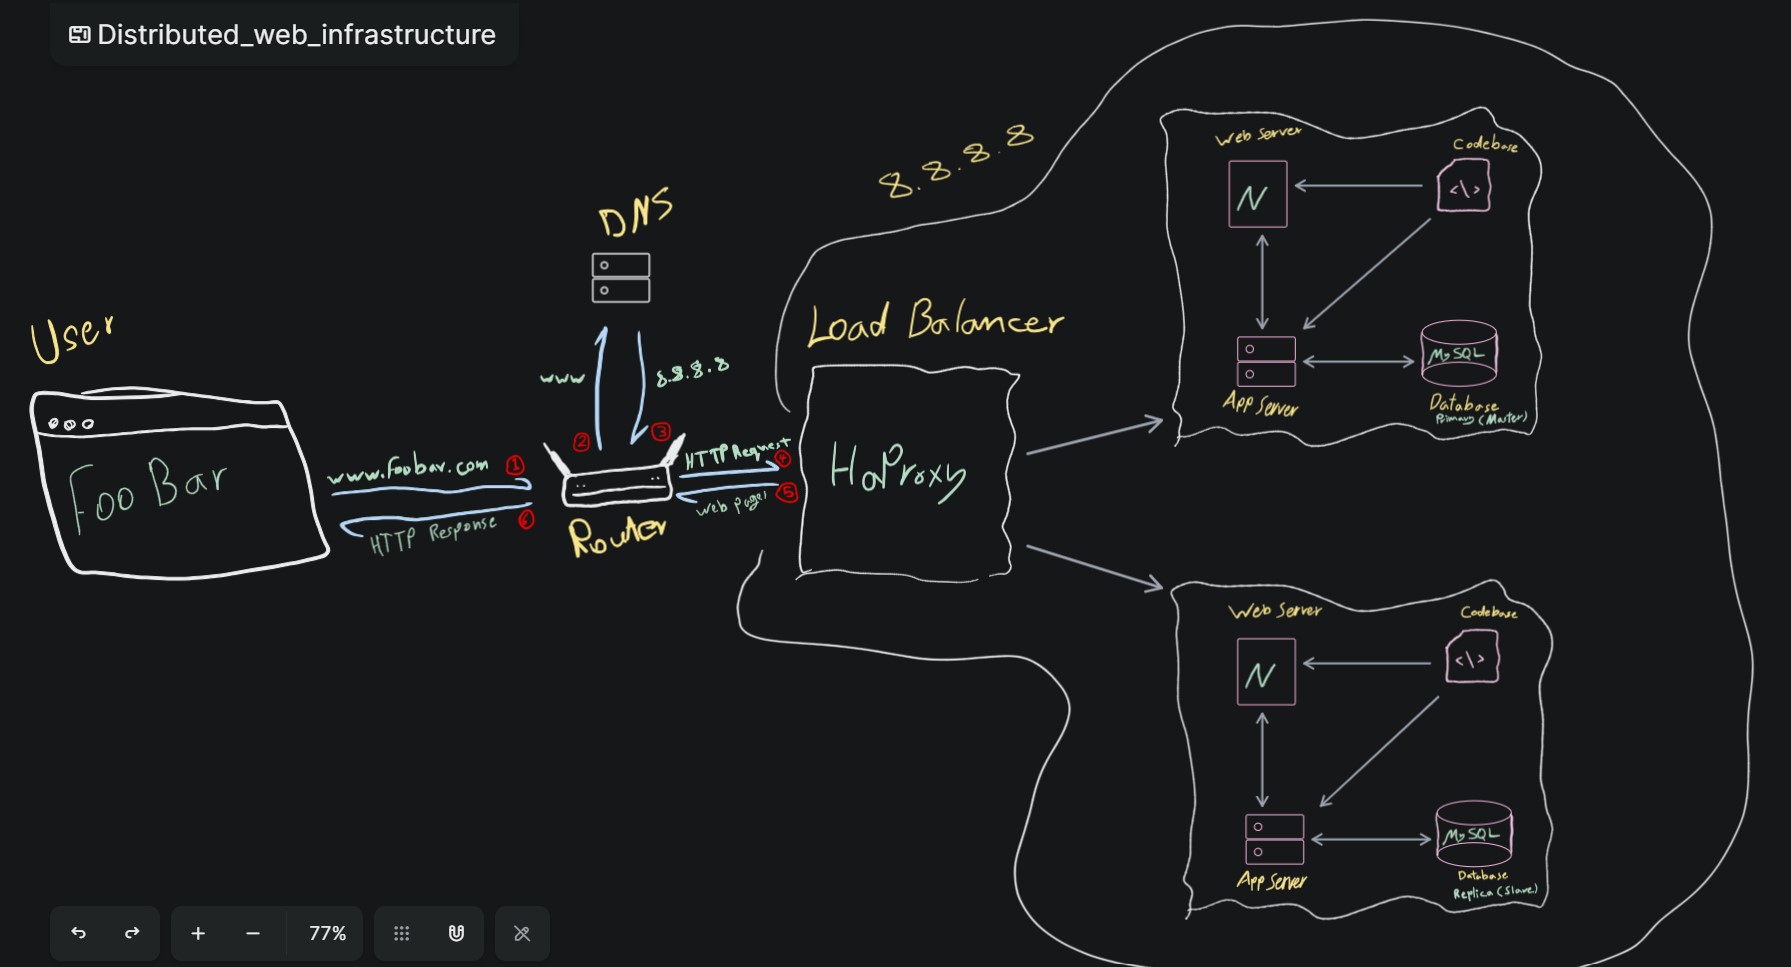 Distributed_web_infrastructure
8.8.8.8
DNS
www
8.8.8.8
User
Foo Bar
www.foobar.com
1
HTTP Response
6
2
3
Router
HTTP Request
4
web page
5
Load Balancer
HaProxy
Web Server
N
Codebase
<\>
App Server
MySQL
Database
Primary (Master)
Web Server
N
Codebase
<\>
App Server
MySQL
Database
Replica (Slave)
77%